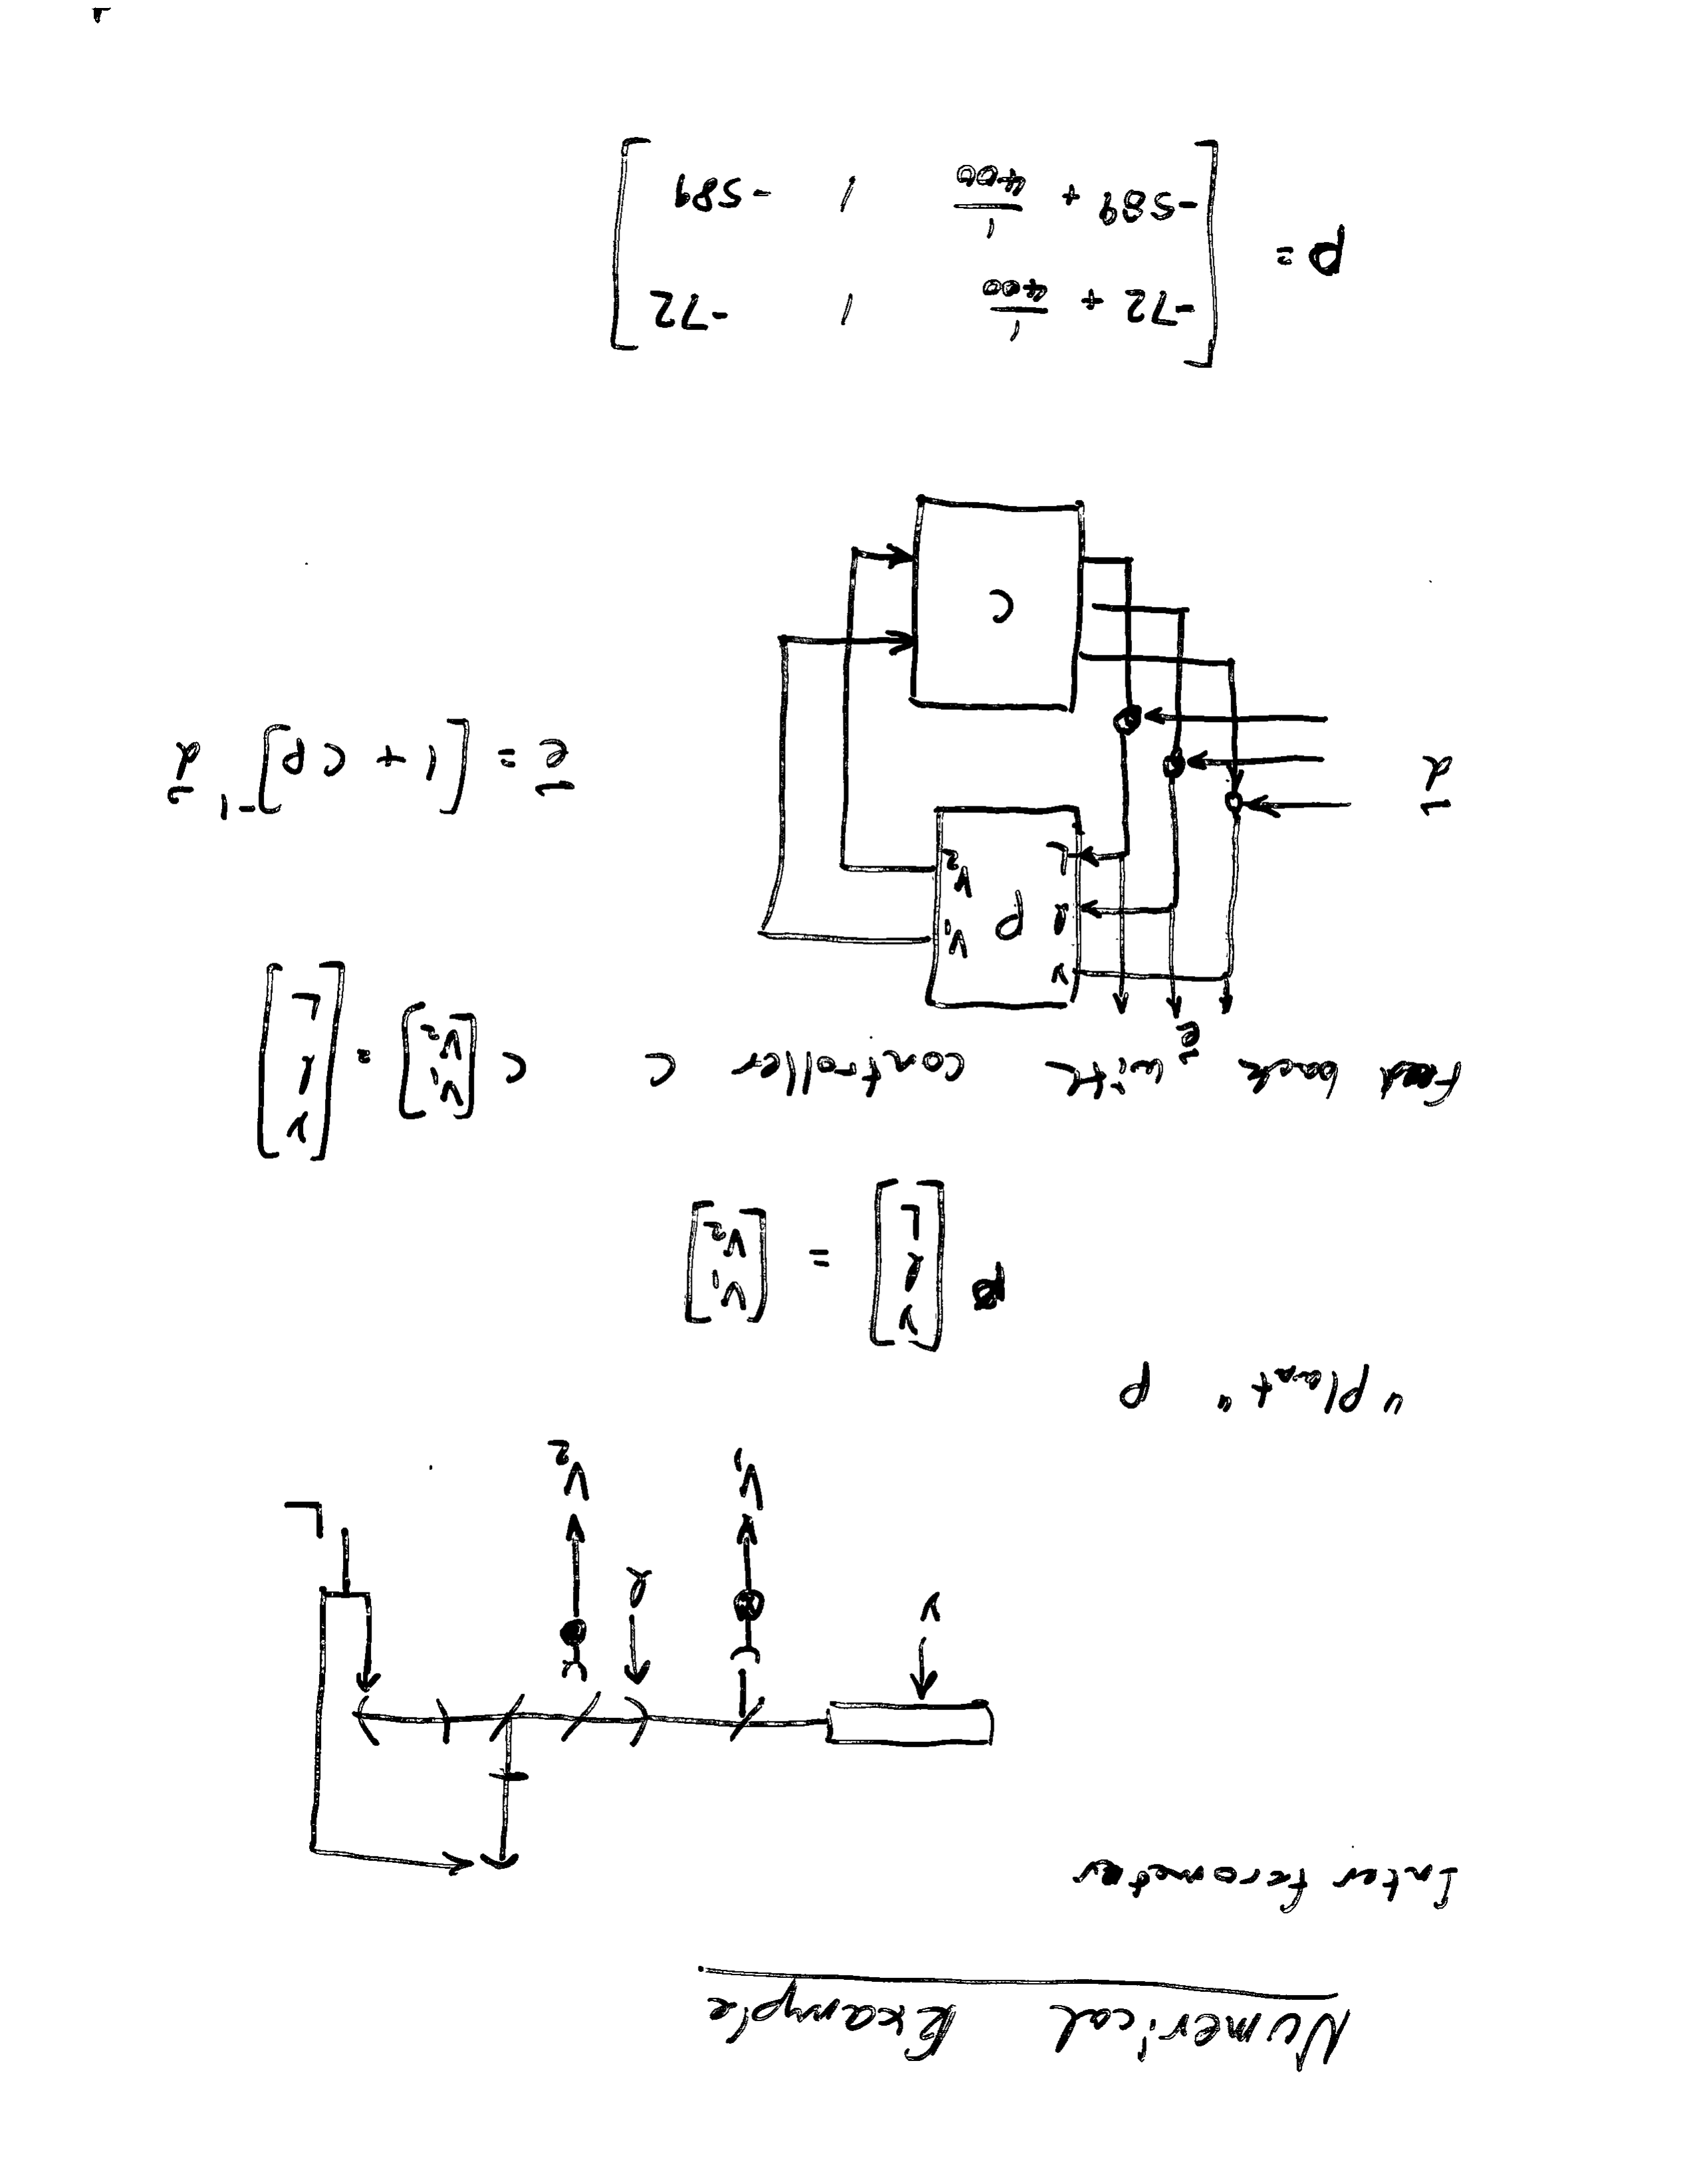 Numerical Example
Interferometer
ν
V₁
l
V₂
L
"Plant" P
P [ν l L] = [V₁ V₂]
Feed back with controller C C [V₁ V₂] = [ν l L]
e
ν V₁
l P
L V₂
d
e = [1 + CP]⁻¹ d
C
P = [-72 + 1/400 1 -72
-589 + 1/400 1 -589]